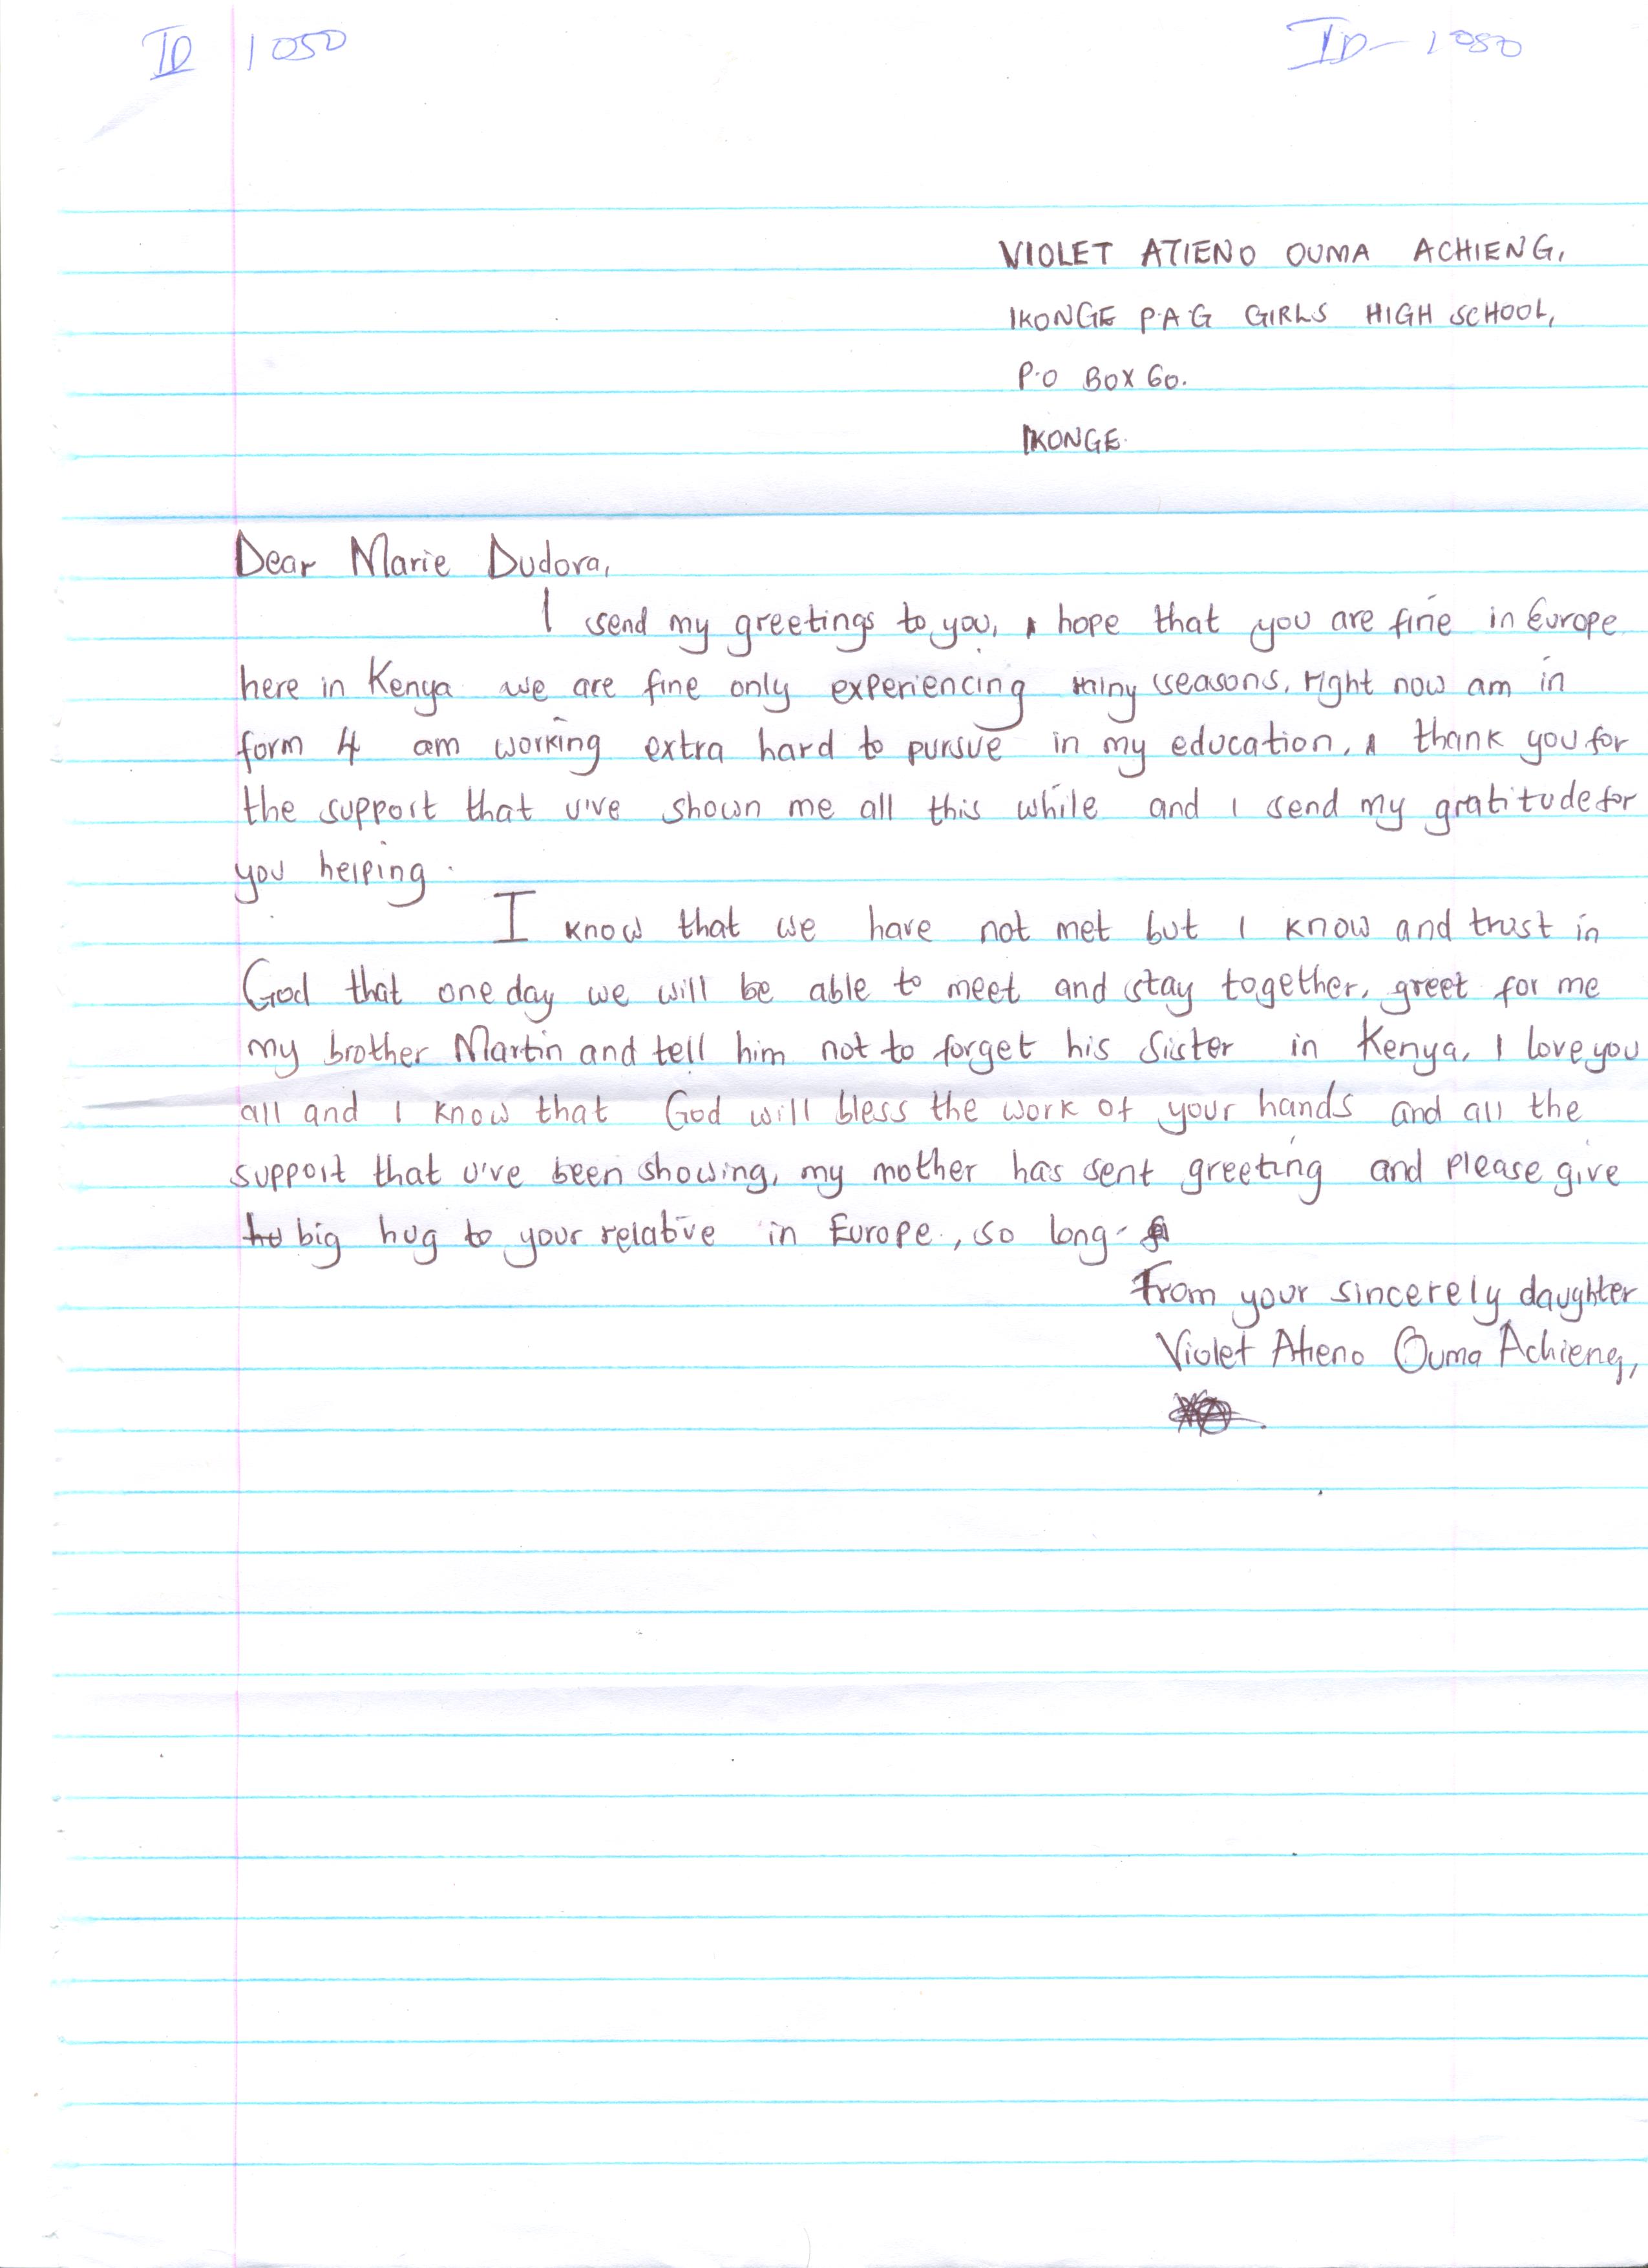 ID 1050 ID - 1050
VIOLET ATIENO OUMA ACHIENG,
IKONGE P.A.G GIRLS HIGH SCHOOL,
P.O BOX 60.
IKONGE.
Dear Marie Dudova,
I send my greetings to you, I hope that you are fine in Europe
here in Kenya we are fine only experiencing rainy seasons, right now am in
form 4 am working extra hard to pursue in my education, I thank you for
the support that u've shown me all this while and I send my gratitude for
you helping.
I know that we have not met but I know and trust in
God that one day we will be able to meet and stay together, greet for me
my brother Martin and tell him not to forget his sister in Kenya, I love you
all and I know that God will bless the work of your hands and all the
support that u've been showing, my mother has sent greeting and please give
big hug to your relative in Europe, so long-
From your sincerely daughter
Violet Atieno Ouma Achieng,